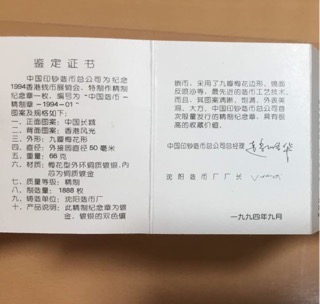 鉴定证书
中国印钞造币总公司为纪念
1994香港钱币展销会，特制作精制
纪念章一枚，编号为“中国造币—
精制章—1994—01”
图案及规格如下：
一、正面图案：中国长城
二、背面图案：香港风光
三、外形：九瓣梅花形
四、直径：外接圆直径50毫米
五、重量：66克
六、材质：梅花型外环铜质镀银，内
芯为铜质镀金
七、质量等级：精制
八、制造量：1888枚
九、铸造单位：沈阳造币厂
十、产品说明：此精制纪念章为镀
金、镀银的双色镶
嵌币，采用了九瓣梅花边形、镜面
反喷沙等，最先进的造币工艺技术，
而且，其图案清晰、饱满、外表美
观、大方，中国印钞造币总公司首
次限量发行的精制纪念章，具有极
高的收藏价值。
中国印钞造币总公司总经理
沈阳造币厂厂长
一九九四年九月